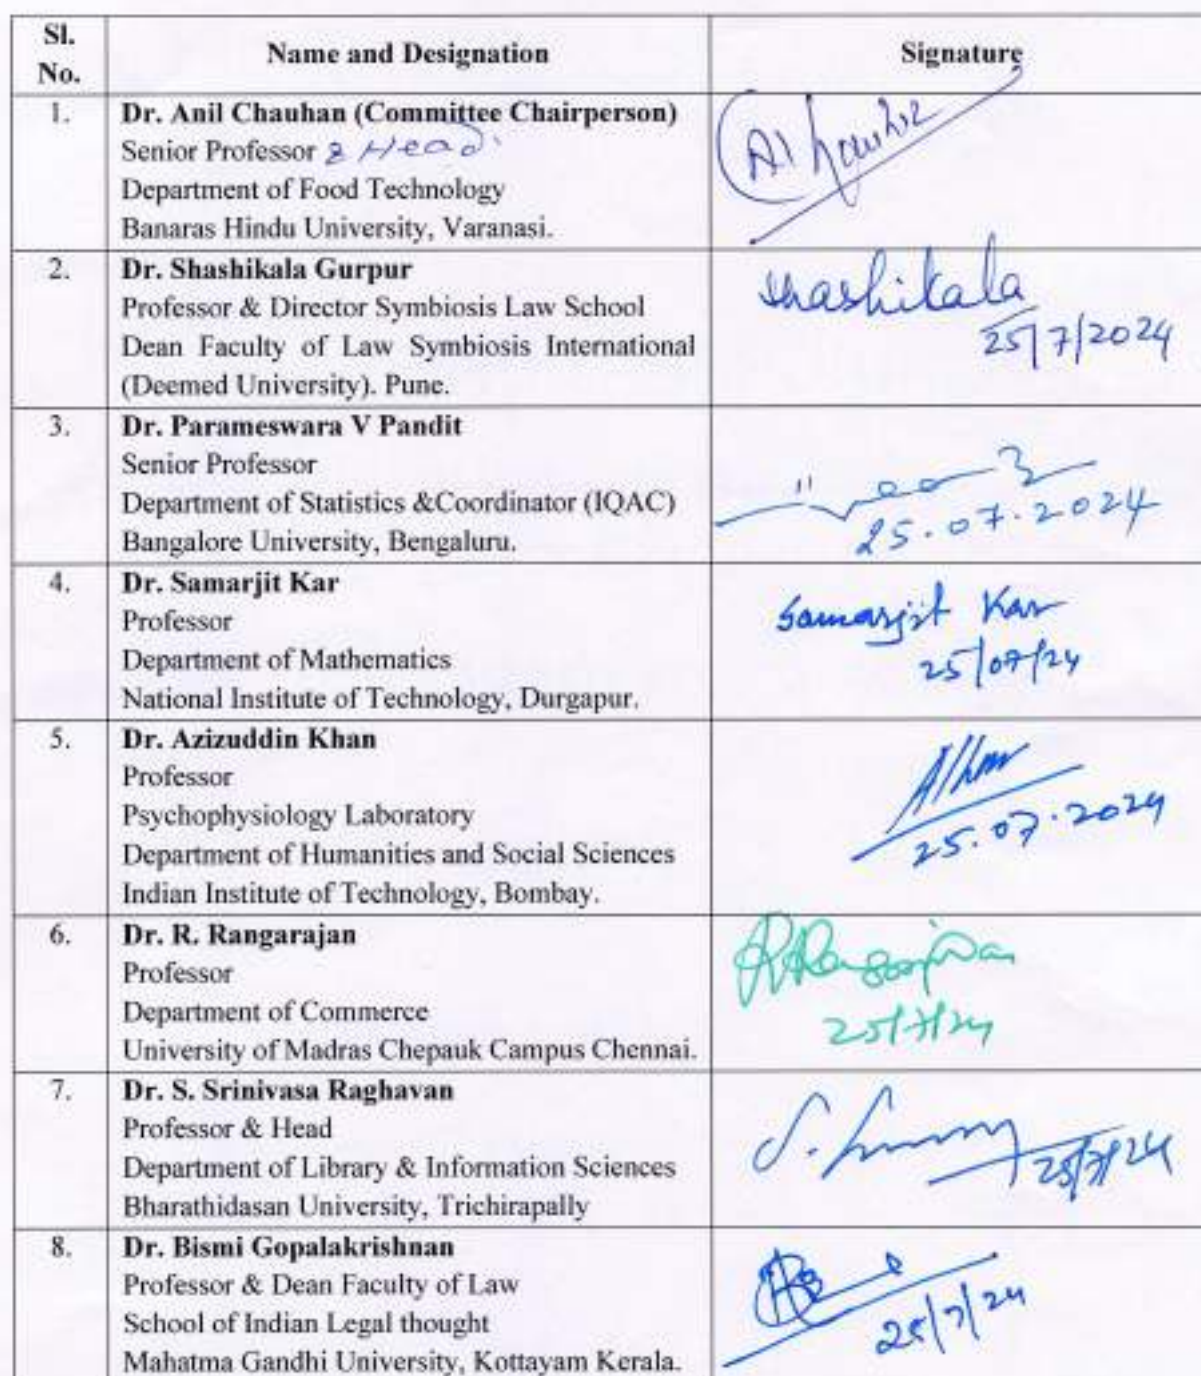 Sl. No.
Name and Designation
Signature
1.
Dr. Anil Chauhan (Committee Chairperson)
Senior Professor & Head
Department of Food Technology
Banaras Hindu University, Varanasi.
2.
Dr. Shashikala Gurpur
Professor & Director Symbiosis Law School
Dean Faculty of Law Symbiosis International
(Deemed University). Pune.
Shashikala
25/7/2024
3.
Dr. Parameswara V Pandit
Senior Professor
Department of Statistics &Coordinator (IQAC)
Bangalore University, Bengaluru.
25.07.2024
4.
Dr. Samarjit Kar
Professor
Department of Mathematics
National Institute of Technology, Durgapur.
Samarjit Kar
25/07/24
5.
Dr. Azizuddin Khan
Professor
Psychophysiology Laboratory
Department of Humanities and Social Sciences
Indian Institute of Technology, Bombay.
25.07.2024
6.
Dr. R. Rangarajan
Professor
Department of Commerce
University of Madras Chepauk Campus Chennai.
25/7/24
7.
Dr. S. Srinivasa Raghavan
Professor & Head
Department of Library & Information Sciences
Bharathidasan University, Trichirapally
25/7/24
8.
Dr. Bismi Gopalakrishnan
Professor & Dean Faculty of Law
School of Indian Legal thought
Mahatma Gandhi University, Kottayam Kerala.
25/7/24